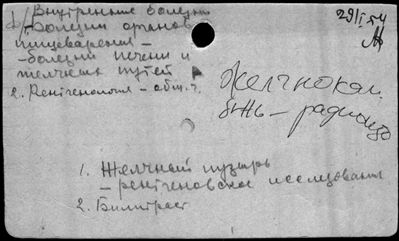 1/ Внутренние болезни
- Болезни органов
пищеварения -
- болезни печени и
желчных путей
2. Рентгенология - общ. ч.
29/I 54
Желчнокам.
б-нь - радиоиз
1. Желчный пузырь
- рентгеновское исследование
2. Билитраст